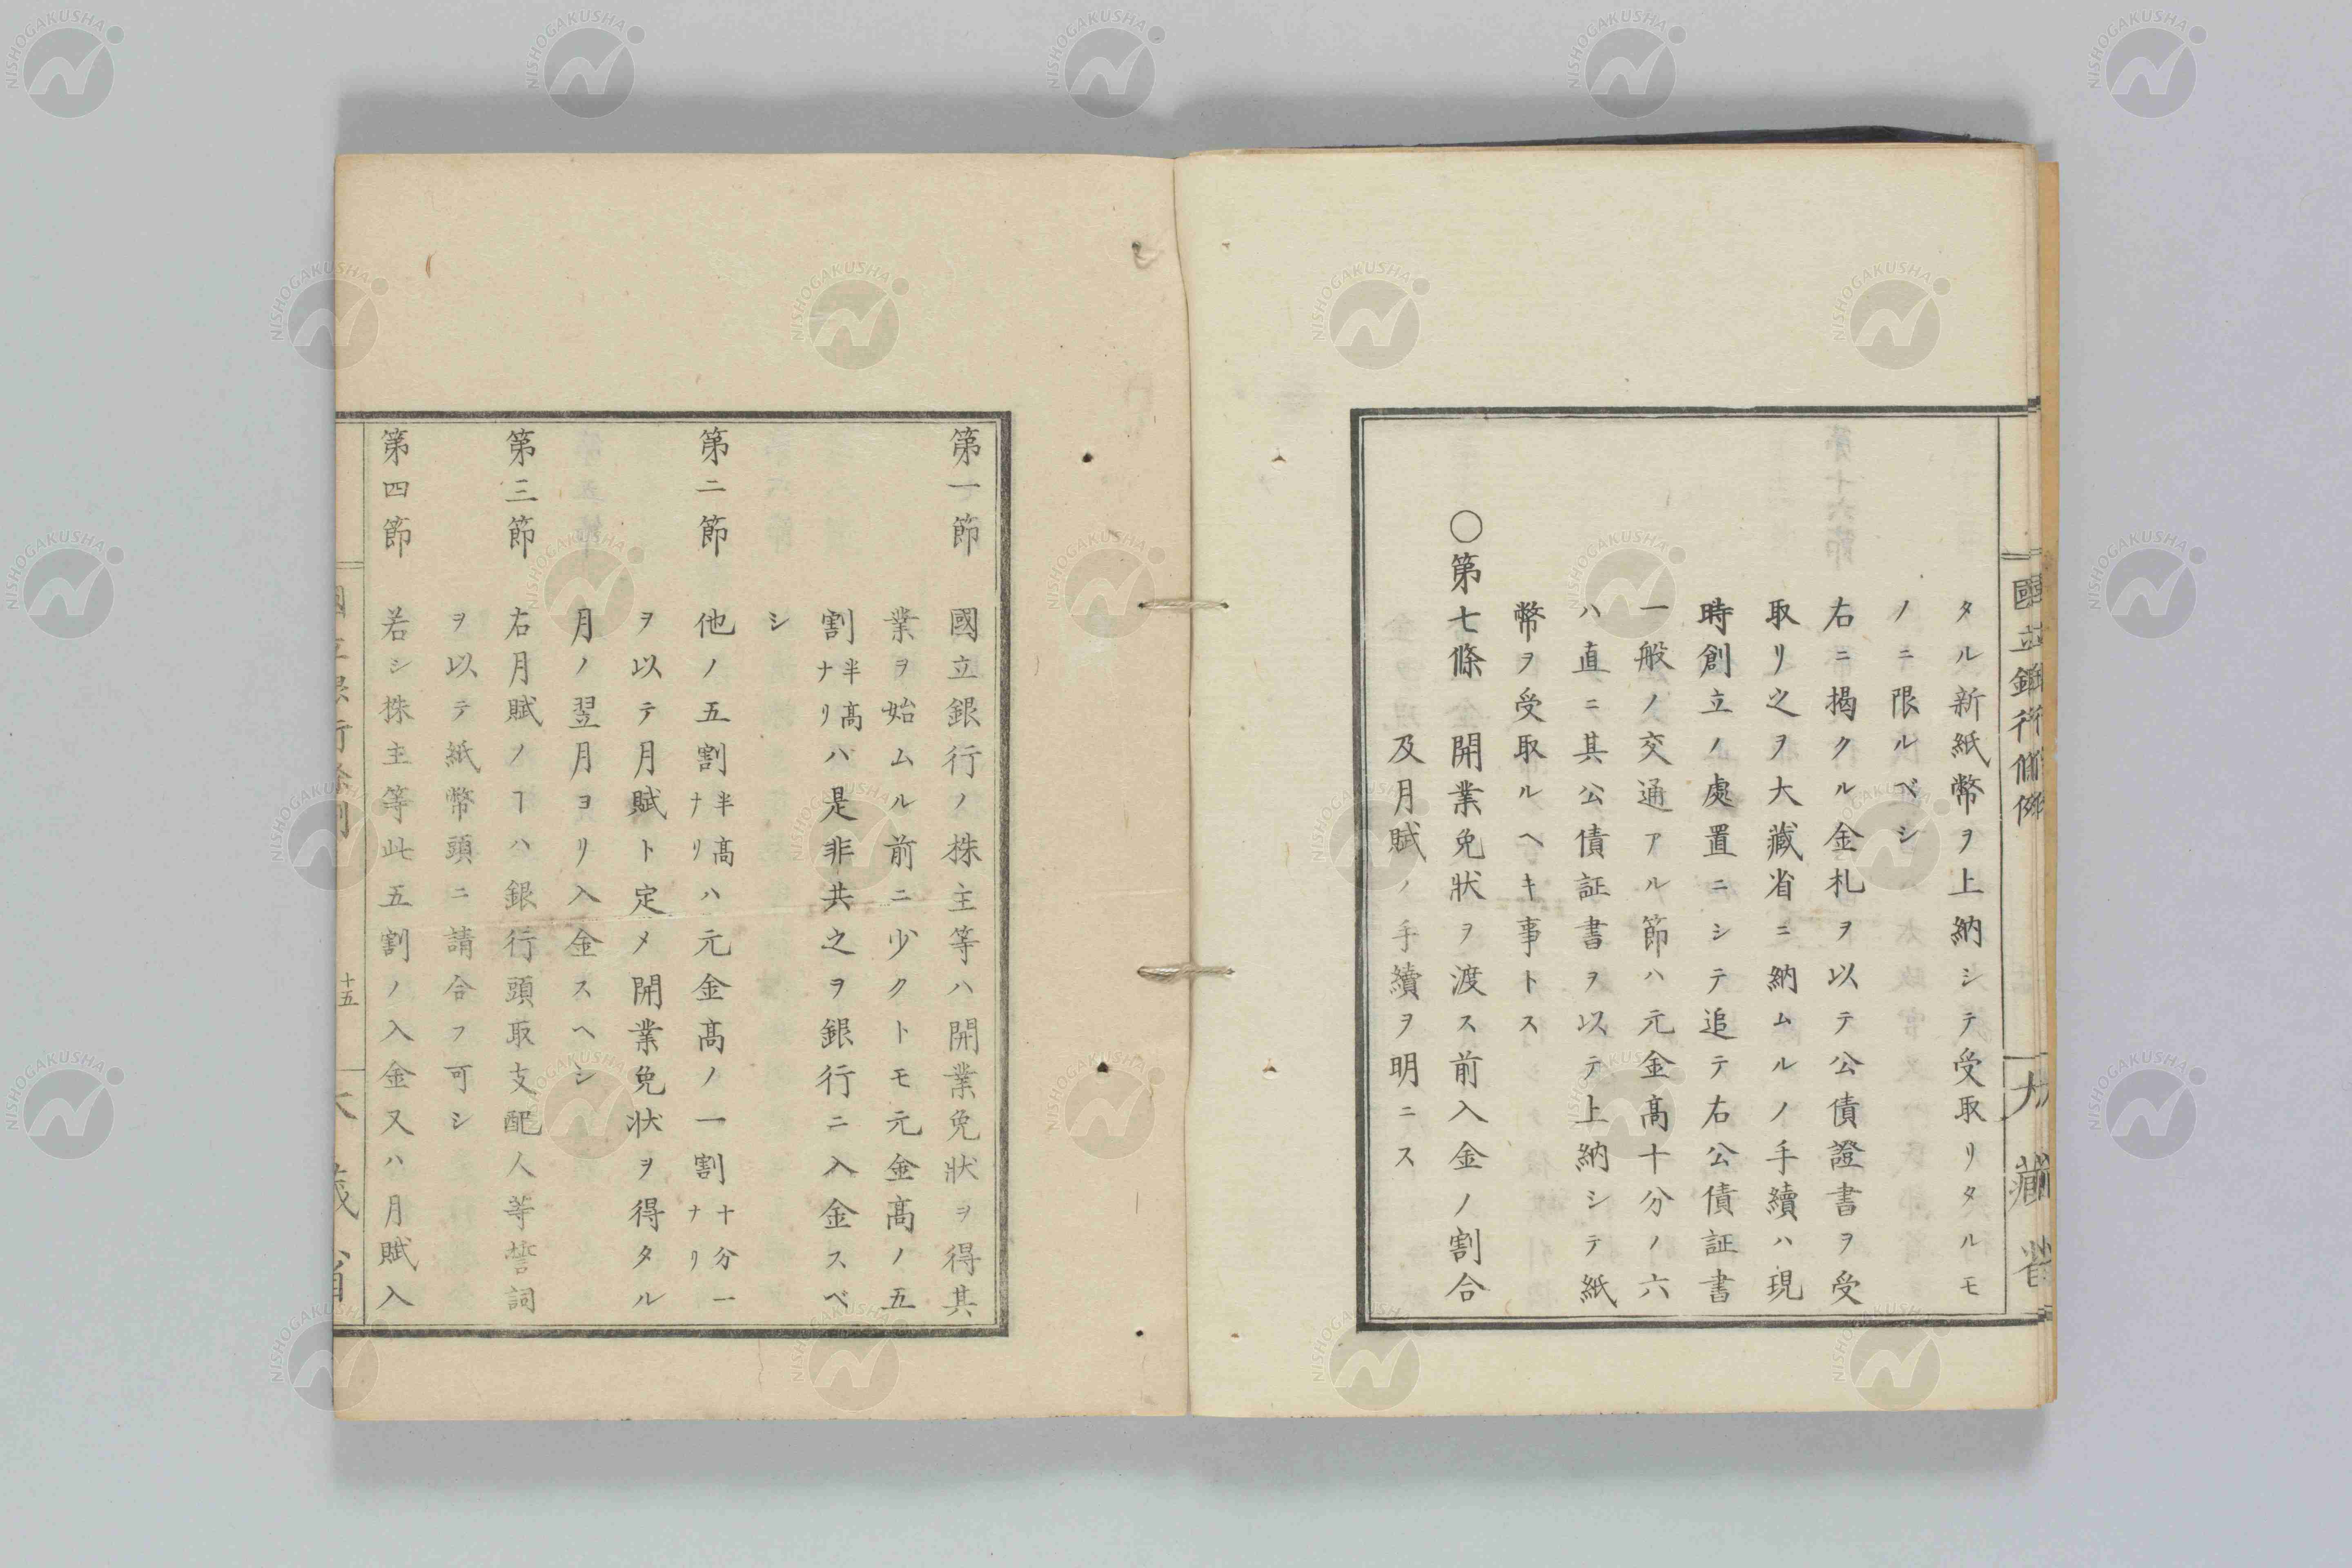 國立銀行條例
大藏省
タル新紙幣ヲ上納シテ受取リタルモ
ノニ限ルベシ
右ニ揭クル金札ヲ以テ公債證書ヲ受
取リ之ヲ大藏省ニ納ムルノ手續ハ現
時創立ノ處置ニシテ追テ右公債証書
一般ノ交通アル節ハ元金高十分ノ六
ハ直ニ其公債証書ヲ以テ上納シテ紙
幣ヲ受取ルヘキ事トス
〇第七條 開業免狀ヲ渡ス前入金ノ割合
及月賦ノ手續ヲ明ニス
第一節 國立銀行ノ株主等ハ開業免狀ヲ得其
業ヲ始ムル前ニ少クトモ元金高ノ五
割半高ナリハ是非共之ヲ銀行ニ入金スベ
シ
第二節 他ノ五割半高ナリハ元金高ノ一割十分一ナリ
ヲ以テ月賦ト定メ開業免狀ヲ得タル
月ノ翌月ヨリ入金スヘシ
第三節 右月賦ノヿハ銀行頭取支配人等誓詞
ヲ以テ紙幣頭ニ請合フ可シ
第四節 若シ株主等此五割ノ入金又ハ月賦入
十五
NISHOGAKUSHA